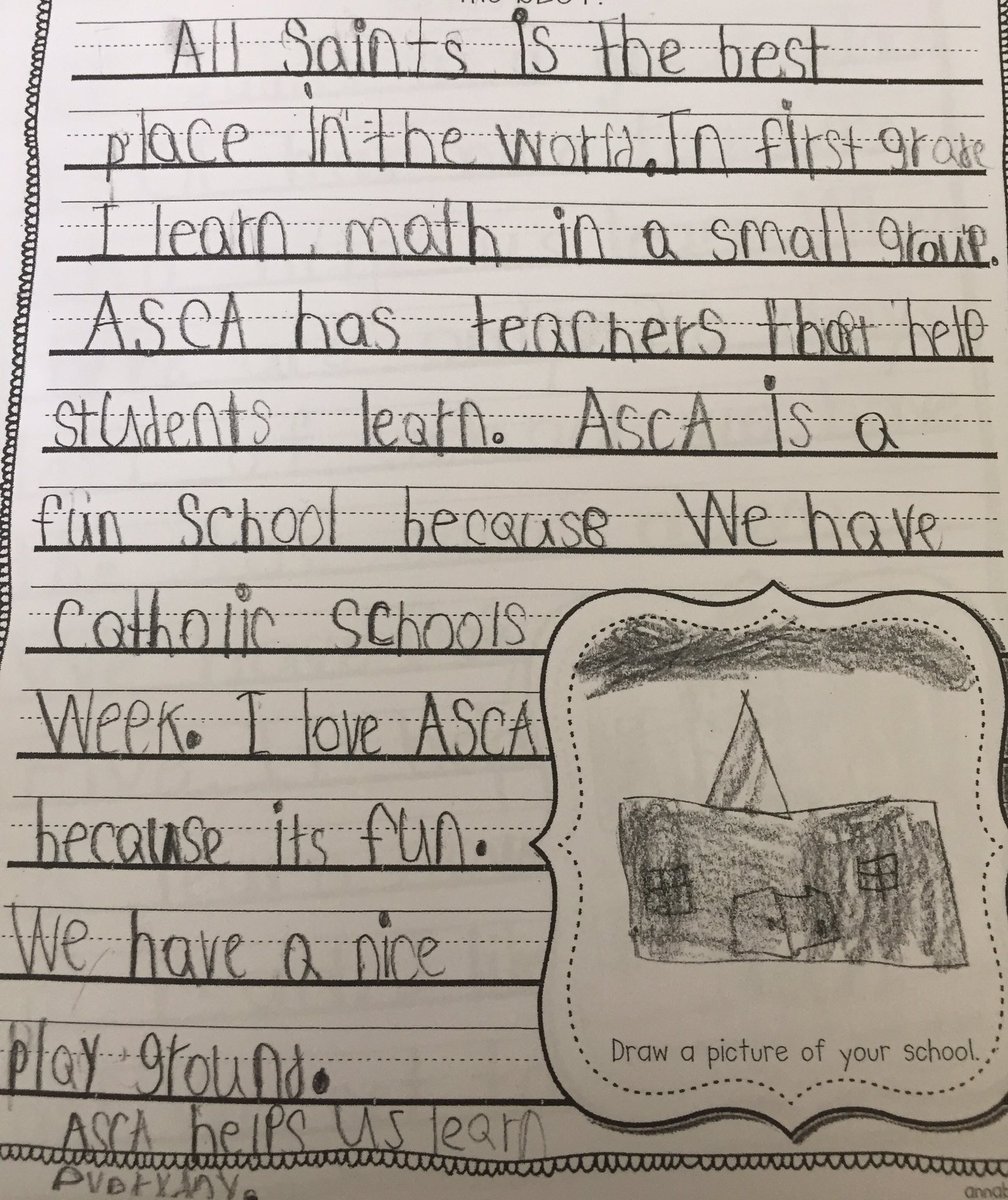 All Saints is the best
place in the world. In first grade
I learn math in a small group.
ASCA has teachers that help
students learn. ASCA is a
fun School because We have
Catholic Schools
Week. I love ASCA
because its fun.
We have a nice
play ground.
Draw a picture of your school.
ASCA helps us learn